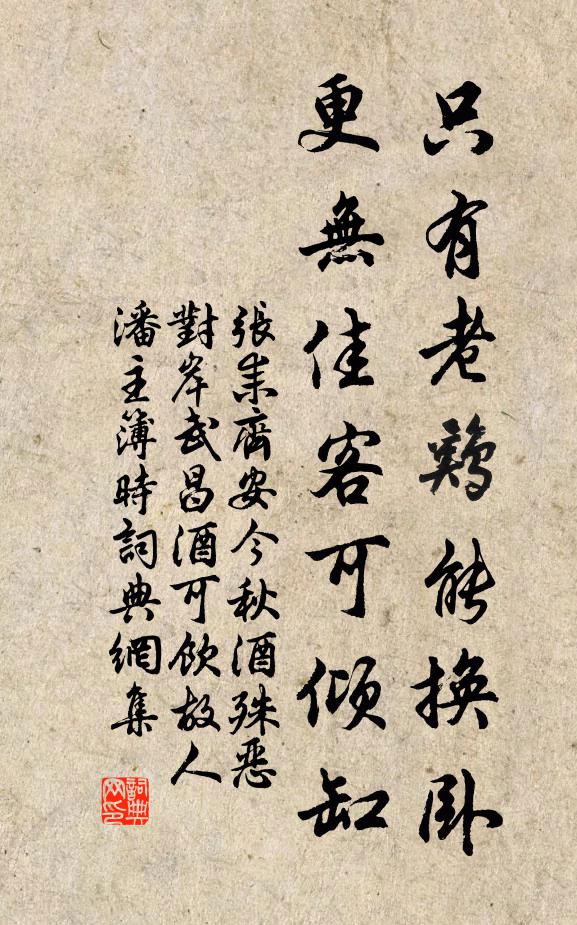 只有老鷄能換卧
更無佳客可傾缸
張耒齊安今秋酒殊惡
對岸武昌酒可飲故人
潘主簿時詞典網集
詞典
网印